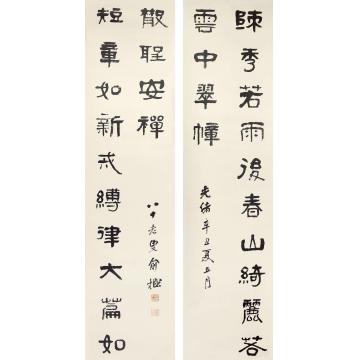 陳秀若雨後春山綺麗若
雲中翠幢
光緒辛丑夏五月
短章如新戒縛律大篇如
散聖安禪
八十老叟俞樾